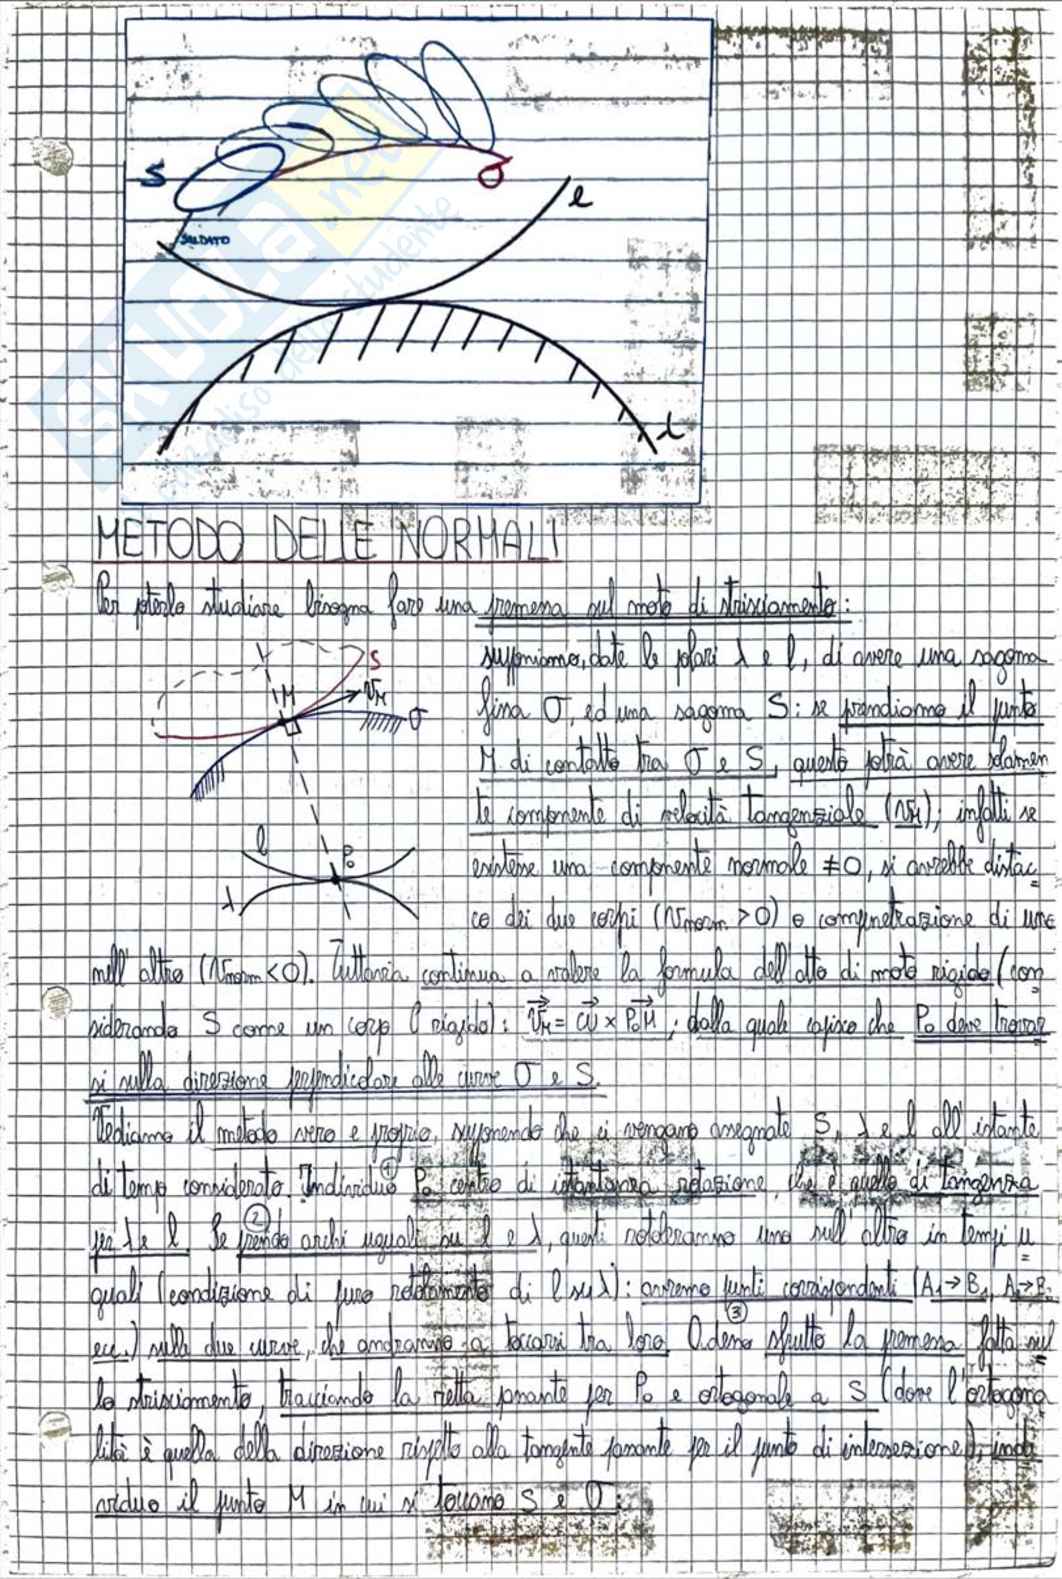 S
σ
l
SALDATO
λ
METODO DELLE NORMALI
Per poterlo studiare bisogna fare una premessa sul moto di strisciamento:
S
M
v_M
σ
l
P₀
λ
supponiamo, date le polari λ e l, di avere una sagoma
fissa σ, ed una sagoma S: se prendiamo il punto
M di contatto tra σ e S, questo potrà avere solamen
te componente di velocità tangenziale (v_M); infatti se
esistesse una componente normale ≠0, si avrebbe distac
co dei due corpi (v_norm > 0) o compenetrazione di uno
nell'altro (v_norm < 0). Tuttavia continua a valere la formula dell'atto di moto rigido (con
siderando S come un corpo rigido): v_M = ω × P₀M, dalla quale capisco che P₀ deve trovar
si sulla direzione perpendicolare alle curve σ e S.
Vediamo il metodo vero e proprio, supponendo che ci vengano assegnate S, λ e l all'istante
di tempo considerato. Individuo ① P₀ centro di istantanea rotazione, che è quello di tangenza
per λ e l. Se ② prendo archi uguali su l e λ, questi rotoleranno uno sull'altro in tempi u
guali (condizione di puro rotolamento di l su λ): avremo punti corrispondenti (A₁→B₁, A₂→B₂
ecc.) sulle due curve, che andranno a toccarsi tra loro. Adesso ③ sfrutto la premessa fatta sul
lo strisciamento, tracciando la retta passante per P₀ e ortogonale a S (dove l'ortogona
lità è quella della direzione rispetto alla tangente passante per il punto di intersezione), indi
viduo il punto M in cui si toccano S e σ.
SKUOLA.net
paradiso dello studente